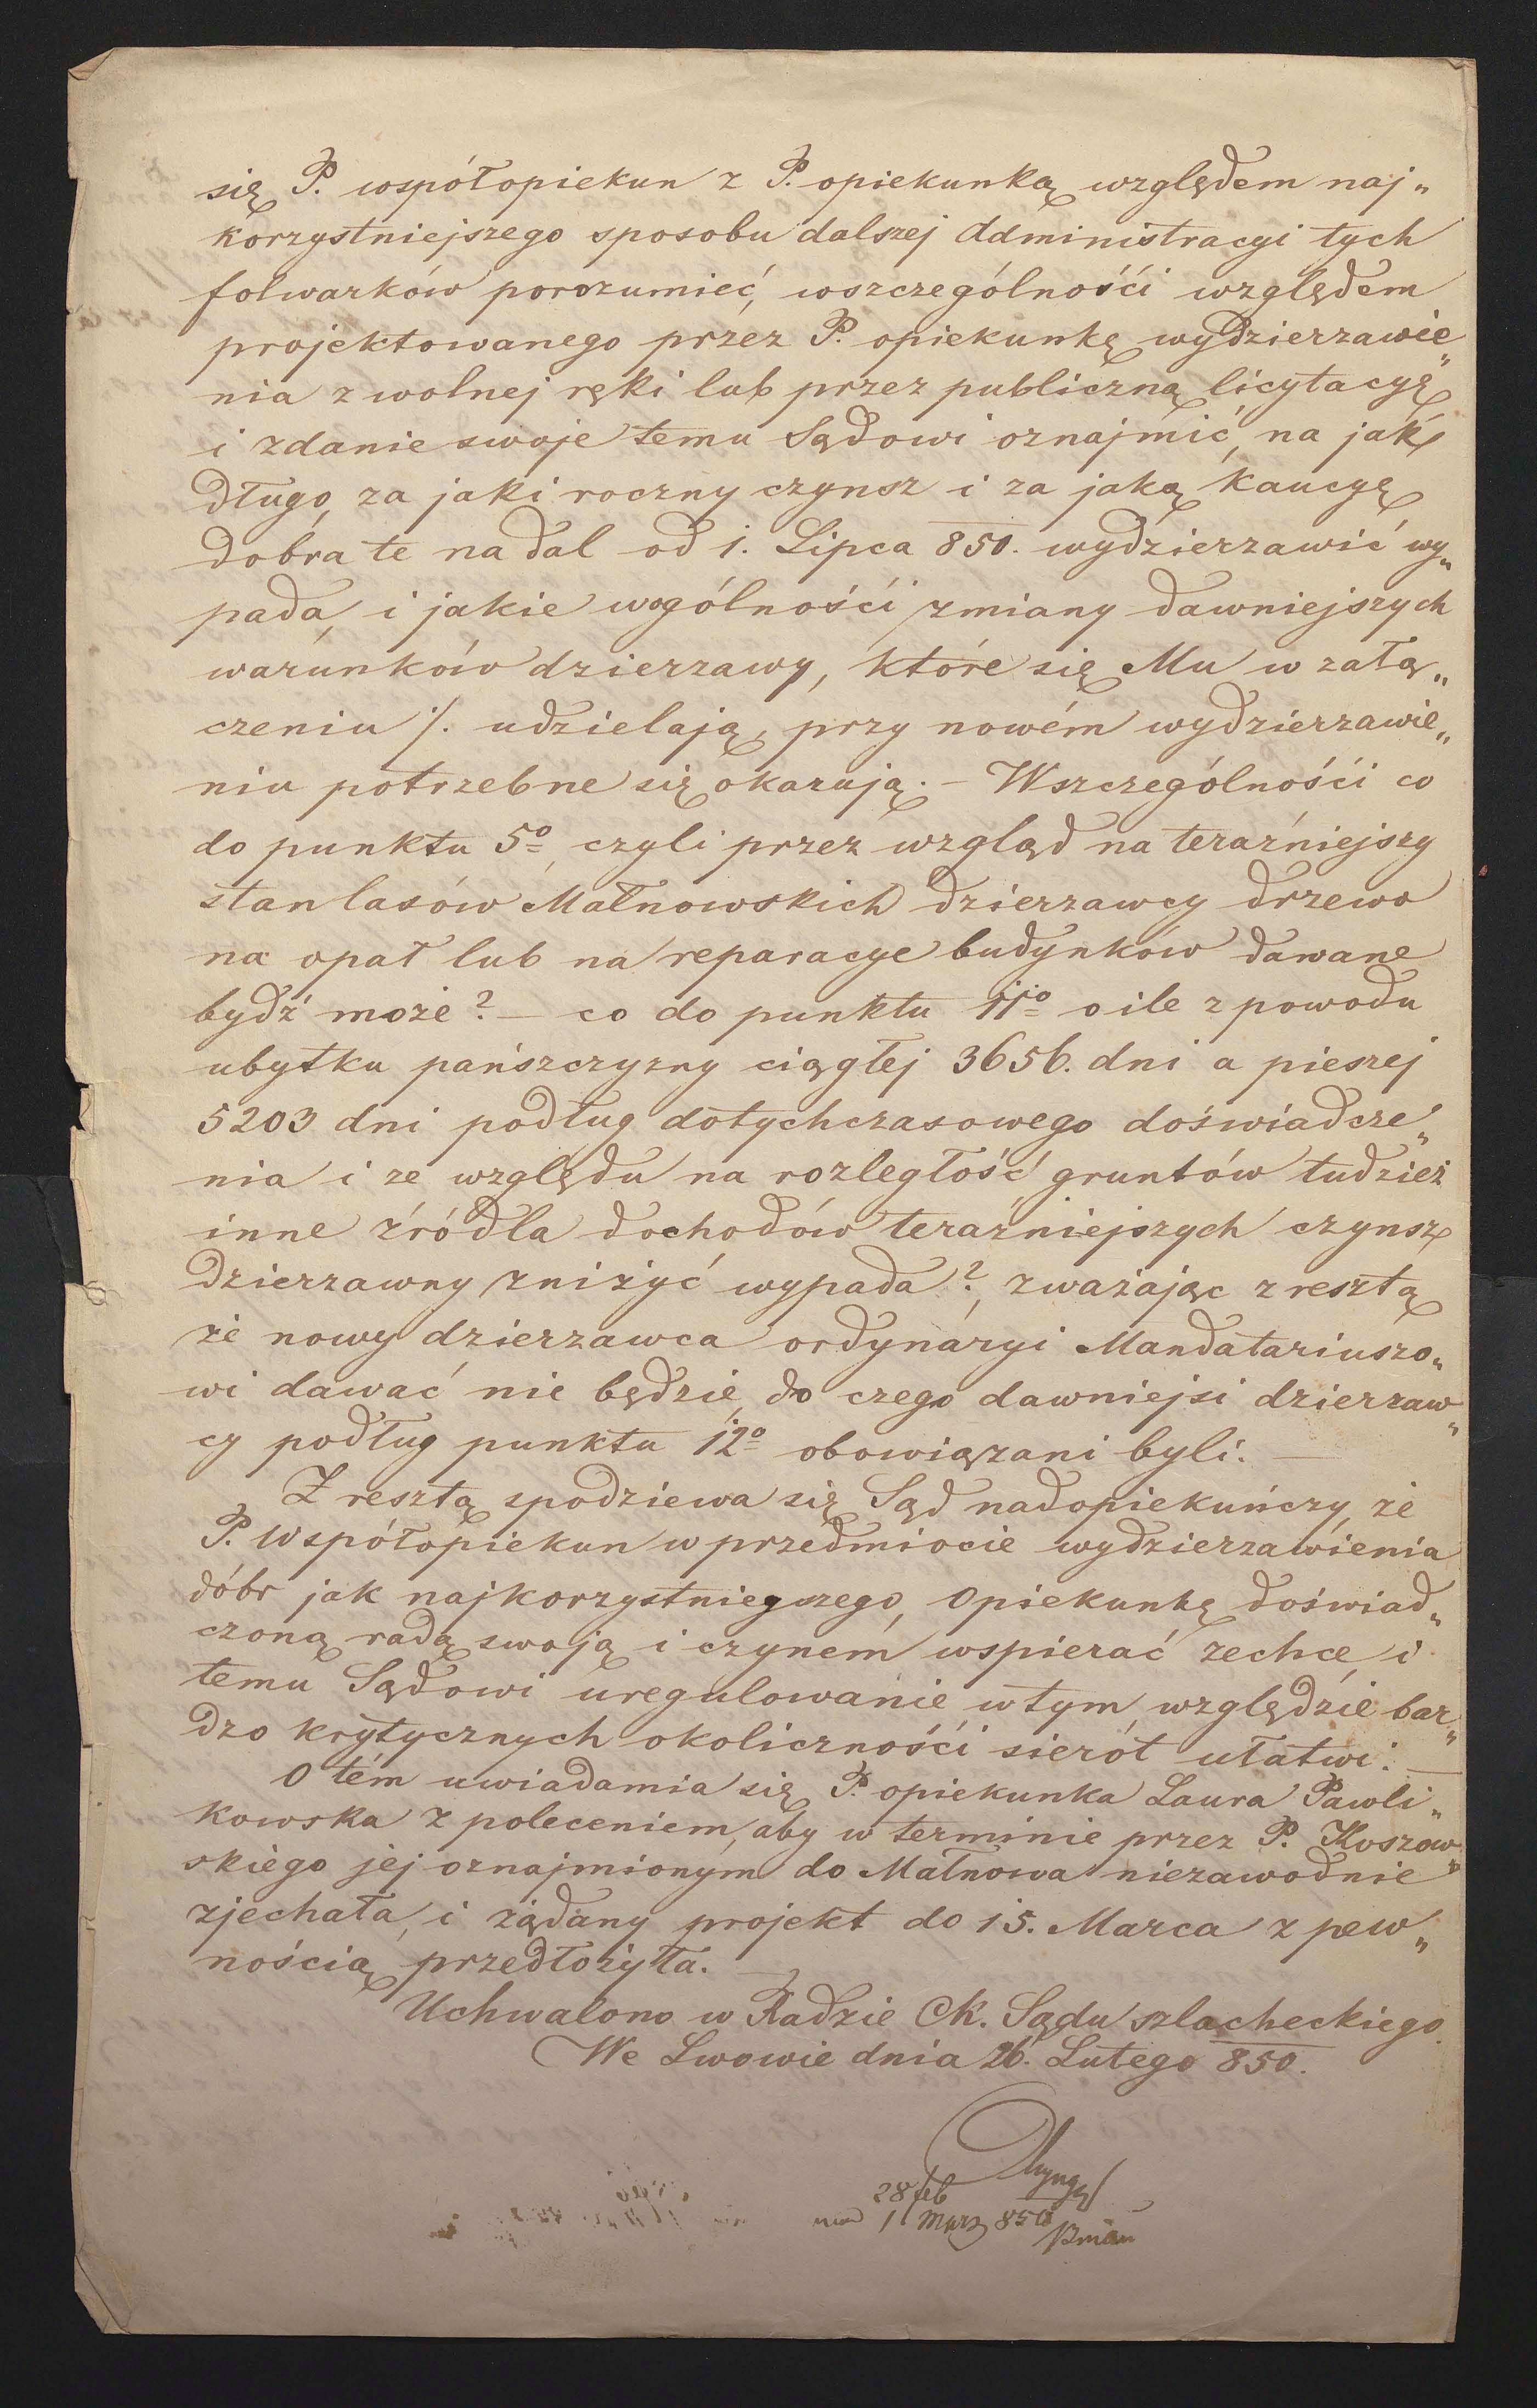 się P. współopiekun z P. opiekunką względem naj„
korzystniejszego sposobu dalszej Administracyi tych
folwarków porozumieć, wszczególnośći względem
projektowanego przez P. opiekunkę wydzierzawie„
nia z wolnej ręki lub przez publiczną licytacyę
i zdanie swoje temu Sądowi oznajmić, na jak
długo, za jaki roczny czynsz i za jaką kaucyę
dobra te nadal od 1. Lipca 850. wydzierzawić wy„
pada, i jakie wogólnośći zmiany dawniejszych
warunków dzierzawy, które się Mu w załą„
czeniu ./. udzielają, przy nowém wydzierzawie„
niu potrzebne się okazują. – Wszczególnośći co
do punktu 5º, czyli przez wzgląd na teraźniejszy
stan lasów Małnowskich dzierzawcy drzewo
na opał lub na reparacye budynków dawane
bydź może? – co do punktu 11º o ile z powodu
ubytku pańszczyzny ciągłej 3656. dni a pieszej
5203 dni podług dotychczasowego doświadcze„
nia i ze względu na rozległość gruntów tudzież
inne źródla dochodów teraźniejszych czynsz
dzierzawny zniżyć wypada?, zważając z resztą
że nowy dzierzawca ordynaryi Mandatariuszo„
wi dawać nie będzie, do czego dawniejsi dzierzaw„
cy podług punktu 12º obowiązani byli. —
Z resztą spodziewa się Sąd nadopiekuńczy, że
P. Współopiekun w przedmiocie wydzierzawienia
dóbr jak najkorzystniegszego, Opiekunkę doświad„
czoną radą swoją i czynem wspierać zechce, i
temu Sądowi uregulowanie w tym względzie bar„
dzo krytycznych okolicznośći sierót ułatwi. —
O tém uwiadamia się P. opiekunka Laura Pawli„
kowska z poleceniem, aby w terminie przez P. Koszow„
skiego jej oznajmionym do Małnowa niezawodnie
zjechała, i żądany projekt do 15. Marca z pew„
nością przedłożyła. —
Uchwalono w Radzie CK. Sądu szlacheckiego.
We Lwowie dnia 26. Lutego 850.
28 feb
1 Marz 850